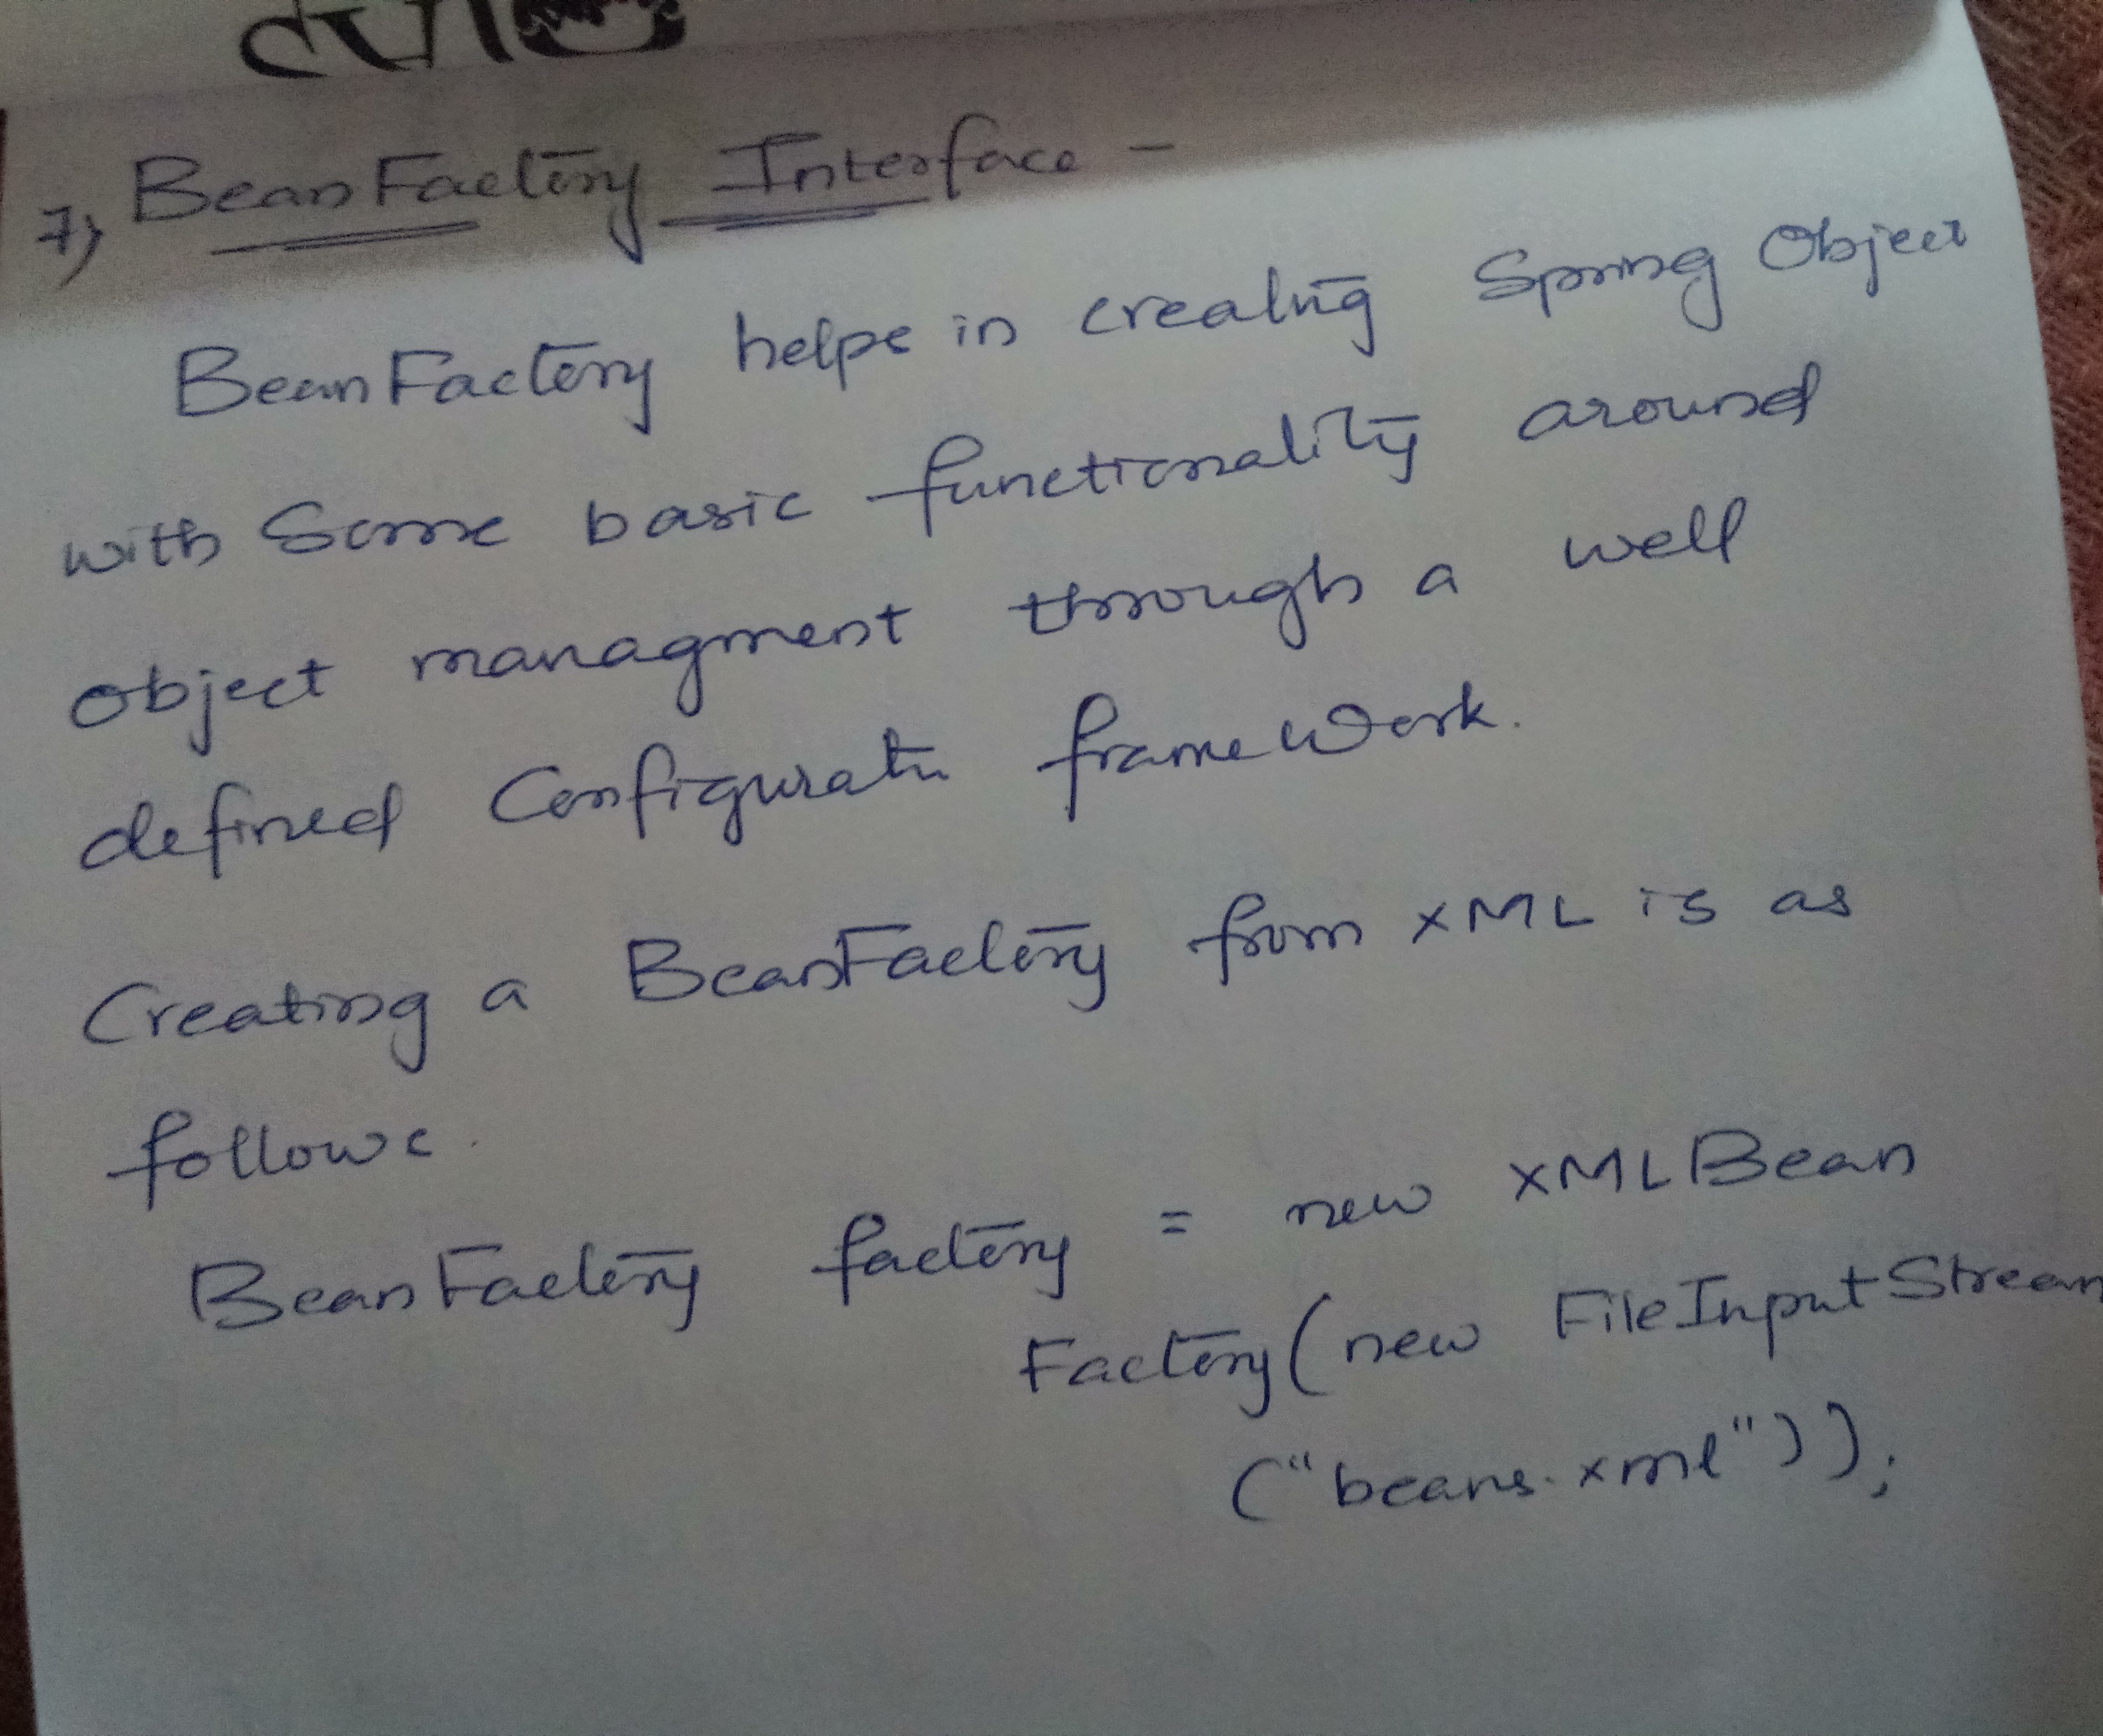 7) BeanFactory Interface -
BeanFactory helps in creating Spring Object
with Some basic functionality around
object managment through a well
defined Configuratn frameWork.
Creating a BeanFactory from XML is as
follows.
BeanFactory factory = new XMLBean
Factory(new FileInputStream
("beans.xml"));